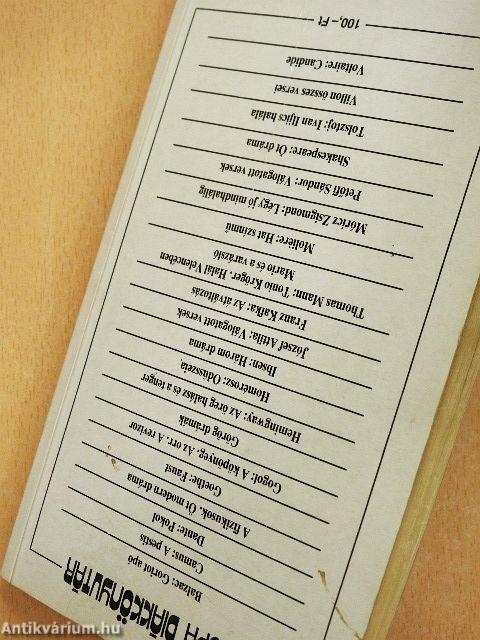 DIÁKKÖNYVTÁR
Balzac: Goriot apó
Camus: A pestis
Dante: Pokol
A fizikusok. Öt modern dráma
Goethe: Faust
Gogol: A köpönyeg. Az orr. A revizor
Görög drámák
Hemingway: Az öreg halász és a tenger
Homérosz: Odüsszeia
Ibsen: Három dráma
József Attila: Válogatott versek
Franz Kafka: Az átváltozás
Thomas Mann: Tonio Kröger. Halál Velencében
Mario és a varázsló
Molière: Hat színmű
Móricz Zsigmond: Légy jó mindhalálig
Petőfi Sándor: Válogatott versek
Shakespeare: Öt dráma
Tolsztoj: Ivan Iljics halála
Villon összes versei
Voltaire: Candide
100,–Ft
Antikvárium.hu